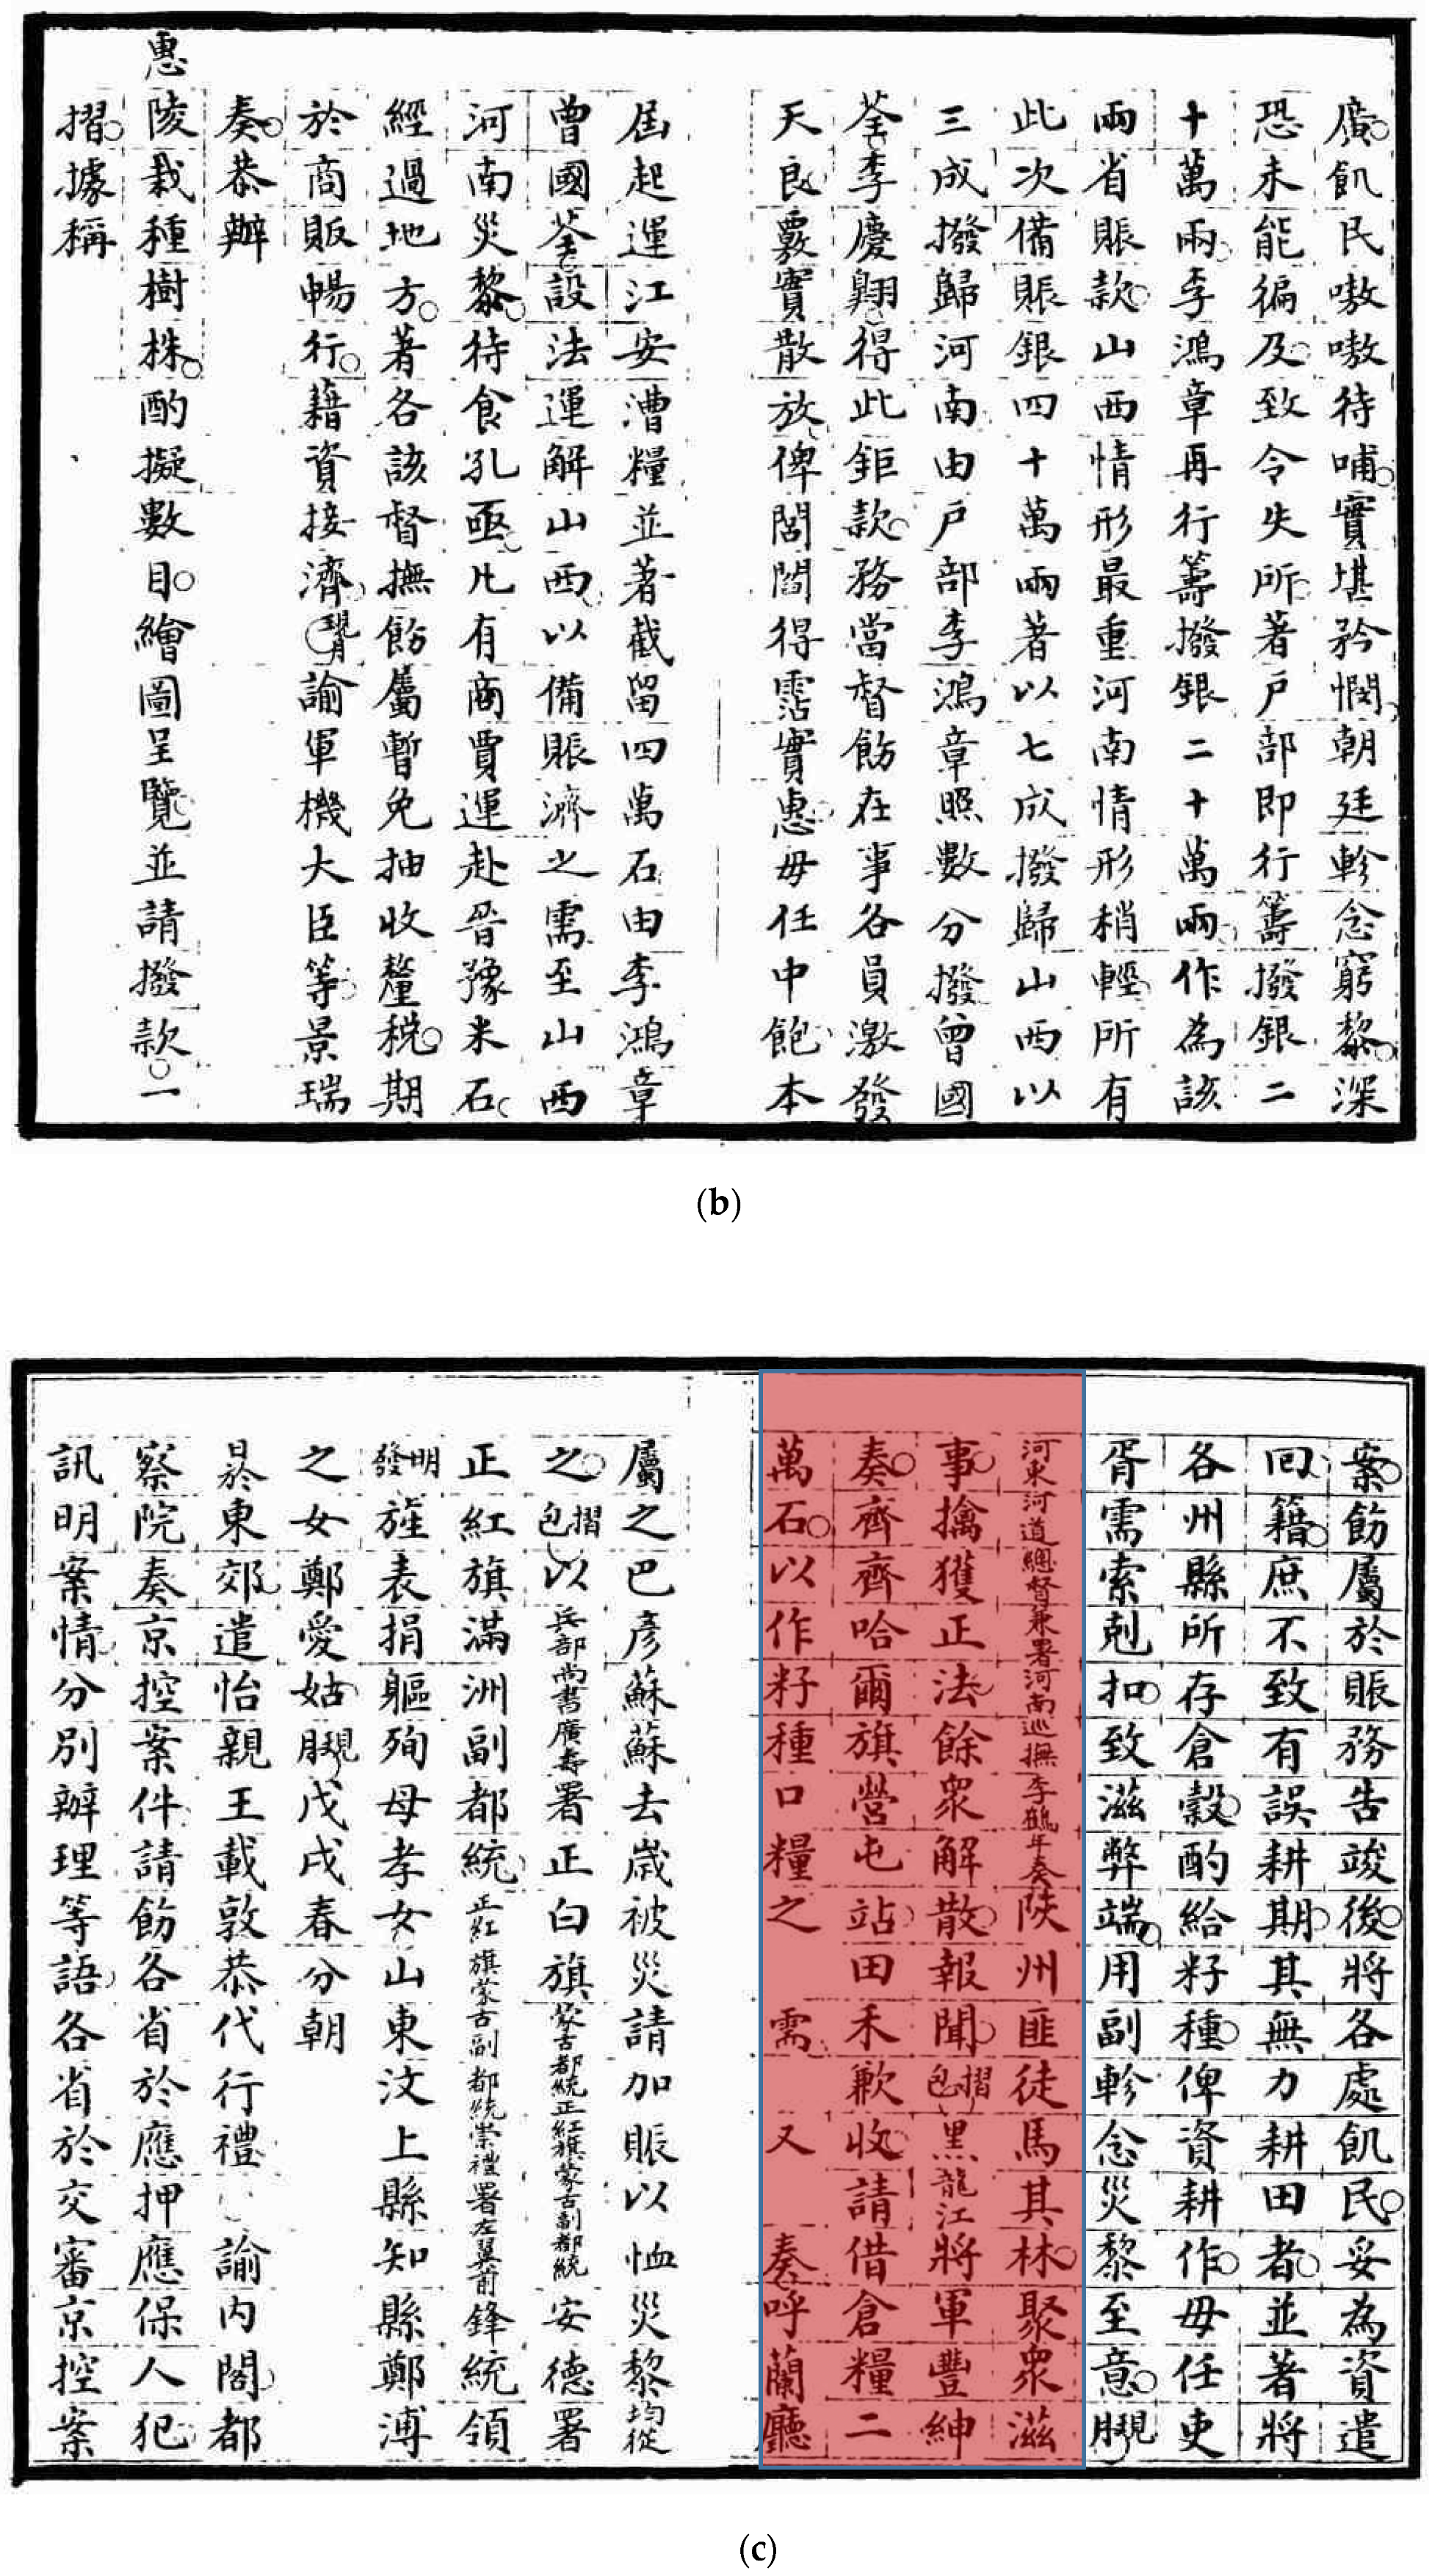 廣飢民嗷嗷待哺實堪矜憫朝廷軫念窮黎深
恐未能徧及致令失所著戶部即行籌撥銀二
十萬兩李鴻章再行籌撥銀二十萬兩作為該
兩省賬款山西情形最重河南情形稍輕所有
此次備賬銀四十萬兩著以七成撥歸山西以
三成撥歸河南由戶部李鴻章照數分撥曾國
荃李慶翺得此鉅款務當督飭在事各員激發
天良覈實散放俾閭閻得霑實惠毋任中飽本
屆起運江安漕糧並著截留四萬石由李鴻章
曾國荃設法運解山西以備賬濟之需至山西
河南災黎待食孔亟凡有商賈運赴晉豫米石
經過地方著各該督撫飭屬暫免抽收釐稅期
於商販暢行藉資接濟現月諭軍機大臣等景瑞
奏恭辦
惠陵栽種樹株酌擬數目繪圖呈覽並請撥款一
摺據稱
(b)
案飭屬於賬務告竣後將各處飢民妥為資遣
回籍庶不致有誤耕期其無力耕田者並著將
各州縣所存倉穀酌給籽種俾資耕作毋任吏
胥需索剋扣致滋弊端用副軫念災黎至意現月
河東河道總督兼署河南巡撫李鶴年奏陝州匪徒馬其林聚眾滋
事擒獲正法餘眾解散報聞摺包黑龍江將軍豐紳
奏齊齊哈爾旗營屯站田禾歉收請借倉糧二
萬石以作籽種口糧之需又奏呼蘭廳
屬之巴彥蘇蘇去歲被災請加賬以恤災黎均從
之摺包以兵部尚書廣壽署正白旗蒙古都統正紅旗蒙古副都統安德署
正紅旗滿洲副都統正紅旗蒙古副都統崇禮署左翼前鋒統領
明發旌表捐軀殉母孝女山東汶上縣知縣鄭溥
之女鄭愛姑現月戊戌春分朝
日於東郊遣怡親王載敦恭代行禮諭內閣都
察院奏京控案件請飭各省於應押應保人犯
訊明案情分別辦理等語各省於交審京控案
(c)